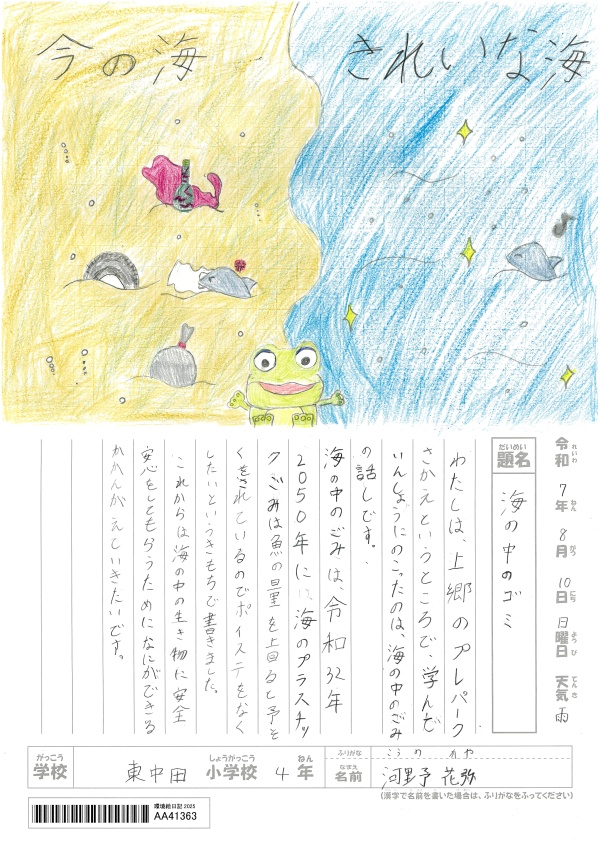 今の海
きれいな海
令和 7年 8月 10日 日曜日 天気 雨
れいわ ねん がつ にち ようび てんき
だいめい
題名
海の中のゴミ
わたしは、上郷のプレパーク
さかえというところで、学んだ
いんしょうにのこったのは、海の中のごみ
の話しです。
海の中のごみは、令和32年
2050年に海のプラスチッ
クごみは魚の量を上回ると予そ
くをされているのでポイステをなく
したいというきもちで書きました。
これからは海の中の生き物に安全
安心をしてもらうためになにができる
かかんがえていきたいです。
がっこう しょうがっこう ねん
学校 東中田 小学校 4年
ふりがな こうの かや
なまえ
名前 河野 花弥
(漢字で名前を書いた場合は、ふりがなをふってください)
環境絵日記 2025
AA41363